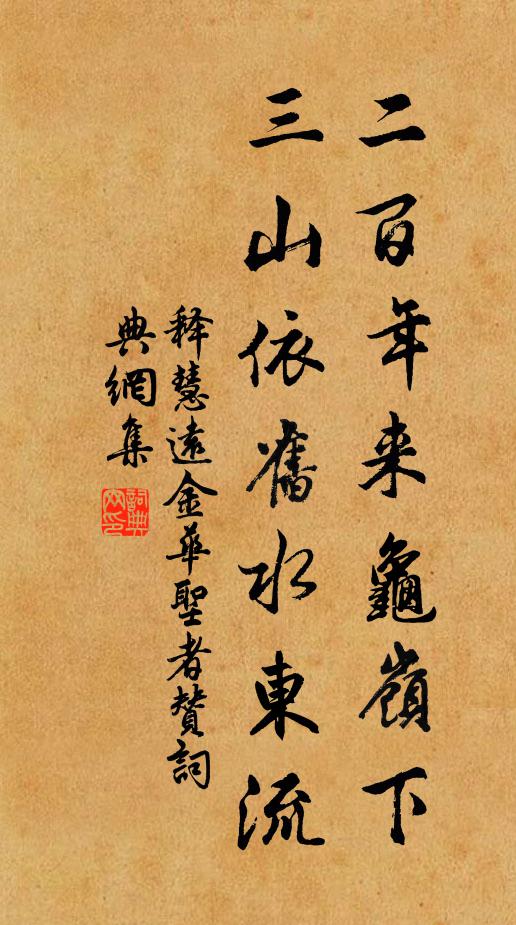 二百年来龜嶺下
三山依舊水東流
释慧遠金華聖者赞詞
典網集
詞典網印